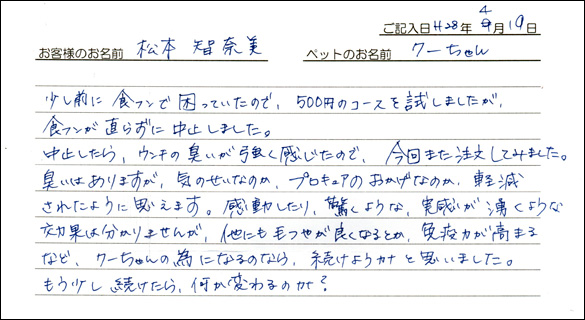 ご記入日 H28年 4月19日
お客様のお名前 松本 智奈美 ペットのお名前 クーちゃん
少し前に食フンで困っていたので、500円のコースを試しましたが、
食フンが直らずに中止しました。
中止したら、ウンチの臭いが強く感じたので、今回また注文してみました。
臭いはありますが、気のせいなのか、プロキュアのおかげなのか、軽減
されたように思えます。感動したり、驚くような、実感が湧くような
効果は分かりませんが、他にも毛つやが良くなるとか、免疫力が高まる
など、クーちゃんの為になるのなら、続けようカナと思いました。
もう少し続けたら、何か変わるのカナ?